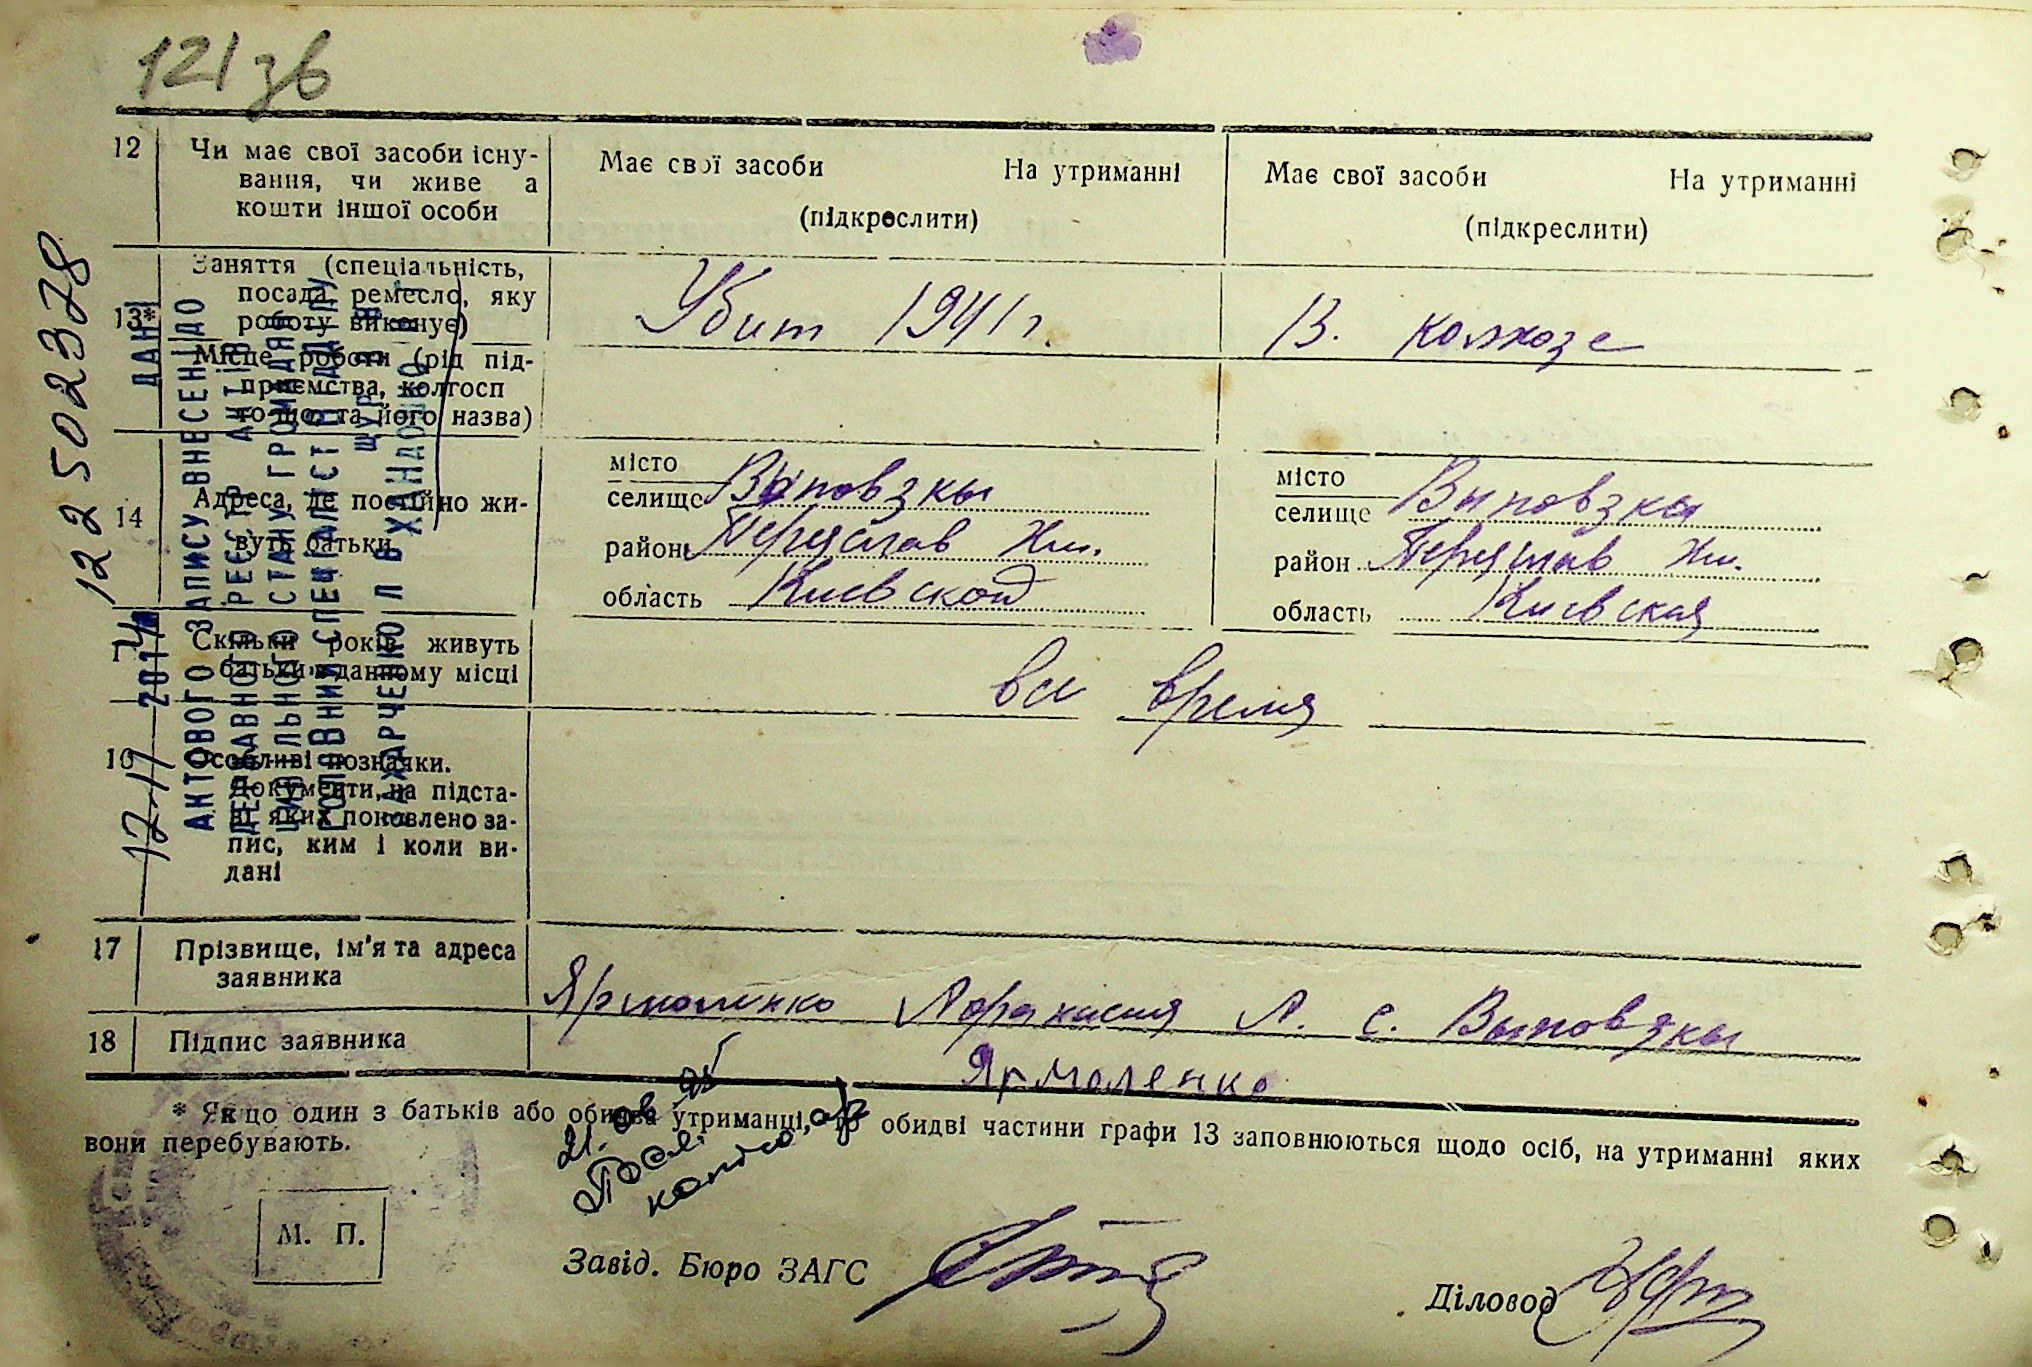 121 зв
12 Чи має свої засоби існу-
вання, чи живе а
кошти іншої особи
Має свої засоби На утриманні
(підкреслити)
Має свої засоби На утриманні
(підкреслити)
13* Заняття (спеціальність,
посада, ремесло, яку
роботу виконує)
Убит 1941 г.
В. колхозе
Місце роботи (рід під-
приємства, колгосп
тощо та його назва)
14 Адреса, де постійно жи-
вуть батьки
місто
селище Выповзки
район Переяслав Хм.
область Киевской
місто
селище Выповзки
район Переяслав Хм.
область Киевская
Скільки років живуть
батьки в данному місці
все время
16 Особливі познаяки.
Документи, на підста-
ві яких поновлено за-
пис, ким і коли ви-
дані
17 Прізвище, ім'я та адреса
заявника
Ярмоленко Афанасия А. с. Выповзки
18 Підпис заявника
Ярмоленко
* Якщо один з батьків або обидва утриманці, то обидві частини графи 13 заповнюються щодо осіб, на утриманні яких
вони перебувають.
М. П.
Завід. Бюро ЗАГС
Діловод
122502378
12 11 2014
ДАНІ
АКТОВОГО ЗАПИСУ ВНЕСЕНІ ДО
ДЕРЖАВНОГО РЕЄСТРУ АКТІВ
ЦИВІЛЬНОГО СТАНУ ГРОМАДЯН
ГОЛОВНИЙ СПЕЦІАЛІСТ ВІДДІЛУ